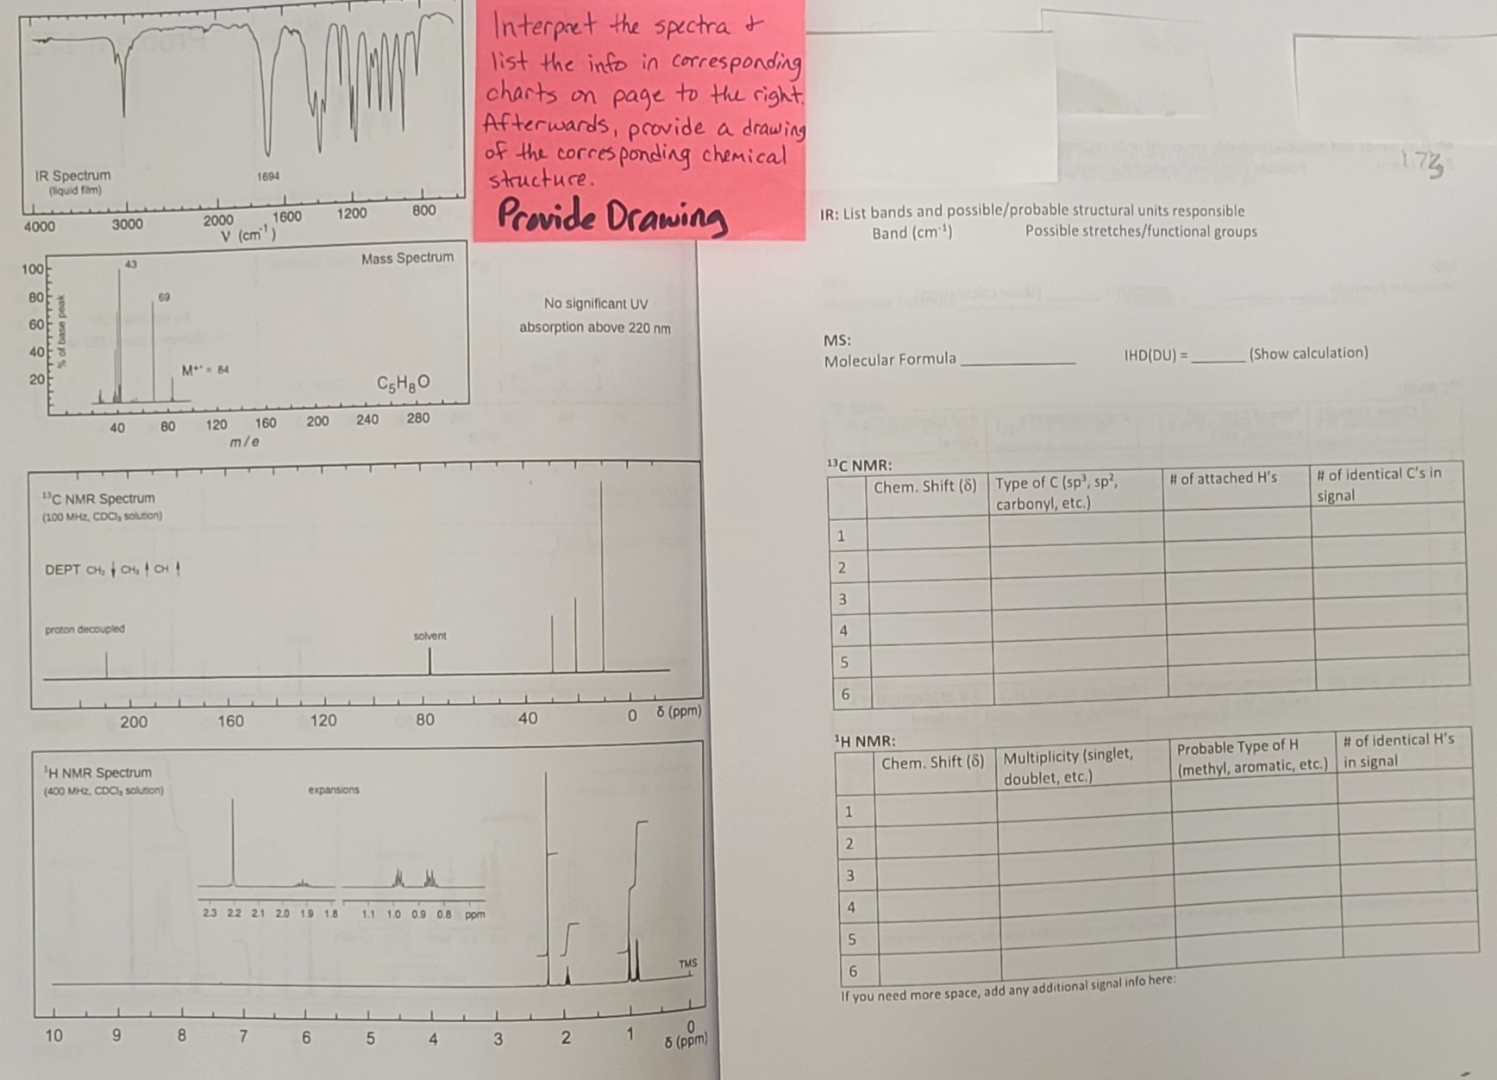 IR Spectrum
(liquid film)
1694
4000 3000 2000 1600 1200 800
V (cm⁻¹)
Interpret the spectra &
list the info in corresponding
charts on page to the right.
Afterwards, provide a drawing
of the corresponding chemical
structure.
Provide Drawing
Mass Spectrum
100
80
60
40
20
% of base peak
43
69
M⁺· = 84
C₅H₈O
40 80 120 160 200 240 280
m/e
No significant UV
absorption above 220 nm
¹³C NMR Spectrum
(100 MHz, CDCl₃ solution)
DEPT CH₂ ↓ CH₃ ↑ CH ↑
proton decoupled
solvent
200 160 120 80 40 0 δ (ppm)
¹H NMR Spectrum
(400 MHz, CDCl₃ solution)
expansions
2.3 2.2 2.1 2.0 1.9 1.8 1.1 1.0 0.9 0.8 ppm
TMS
10 9 8 7 6 5 4 3 2 1 0
δ (ppm)
173
IR: List bands and possible/probable structural units responsible
Band (cm⁻¹) Possible stretches/functional groups
MS:
Molecular Formula ____________ IHD(DU) = ______ (Show calculation)
¹³C NMR:
Chem. Shift (δ) Type of C (sp³, sp², carbonyl, etc.) # of attached H's # of identical C's in signal
1
2
3
4
5
6
¹H NMR:
Chem. Shift (δ) Multiplicity (singlet, doublet, etc.) Probable Type of H (methyl, aromatic, etc.) # of identical H's in signal
1
2
3
4
5
6
If you need more space, add any additional signal info here: